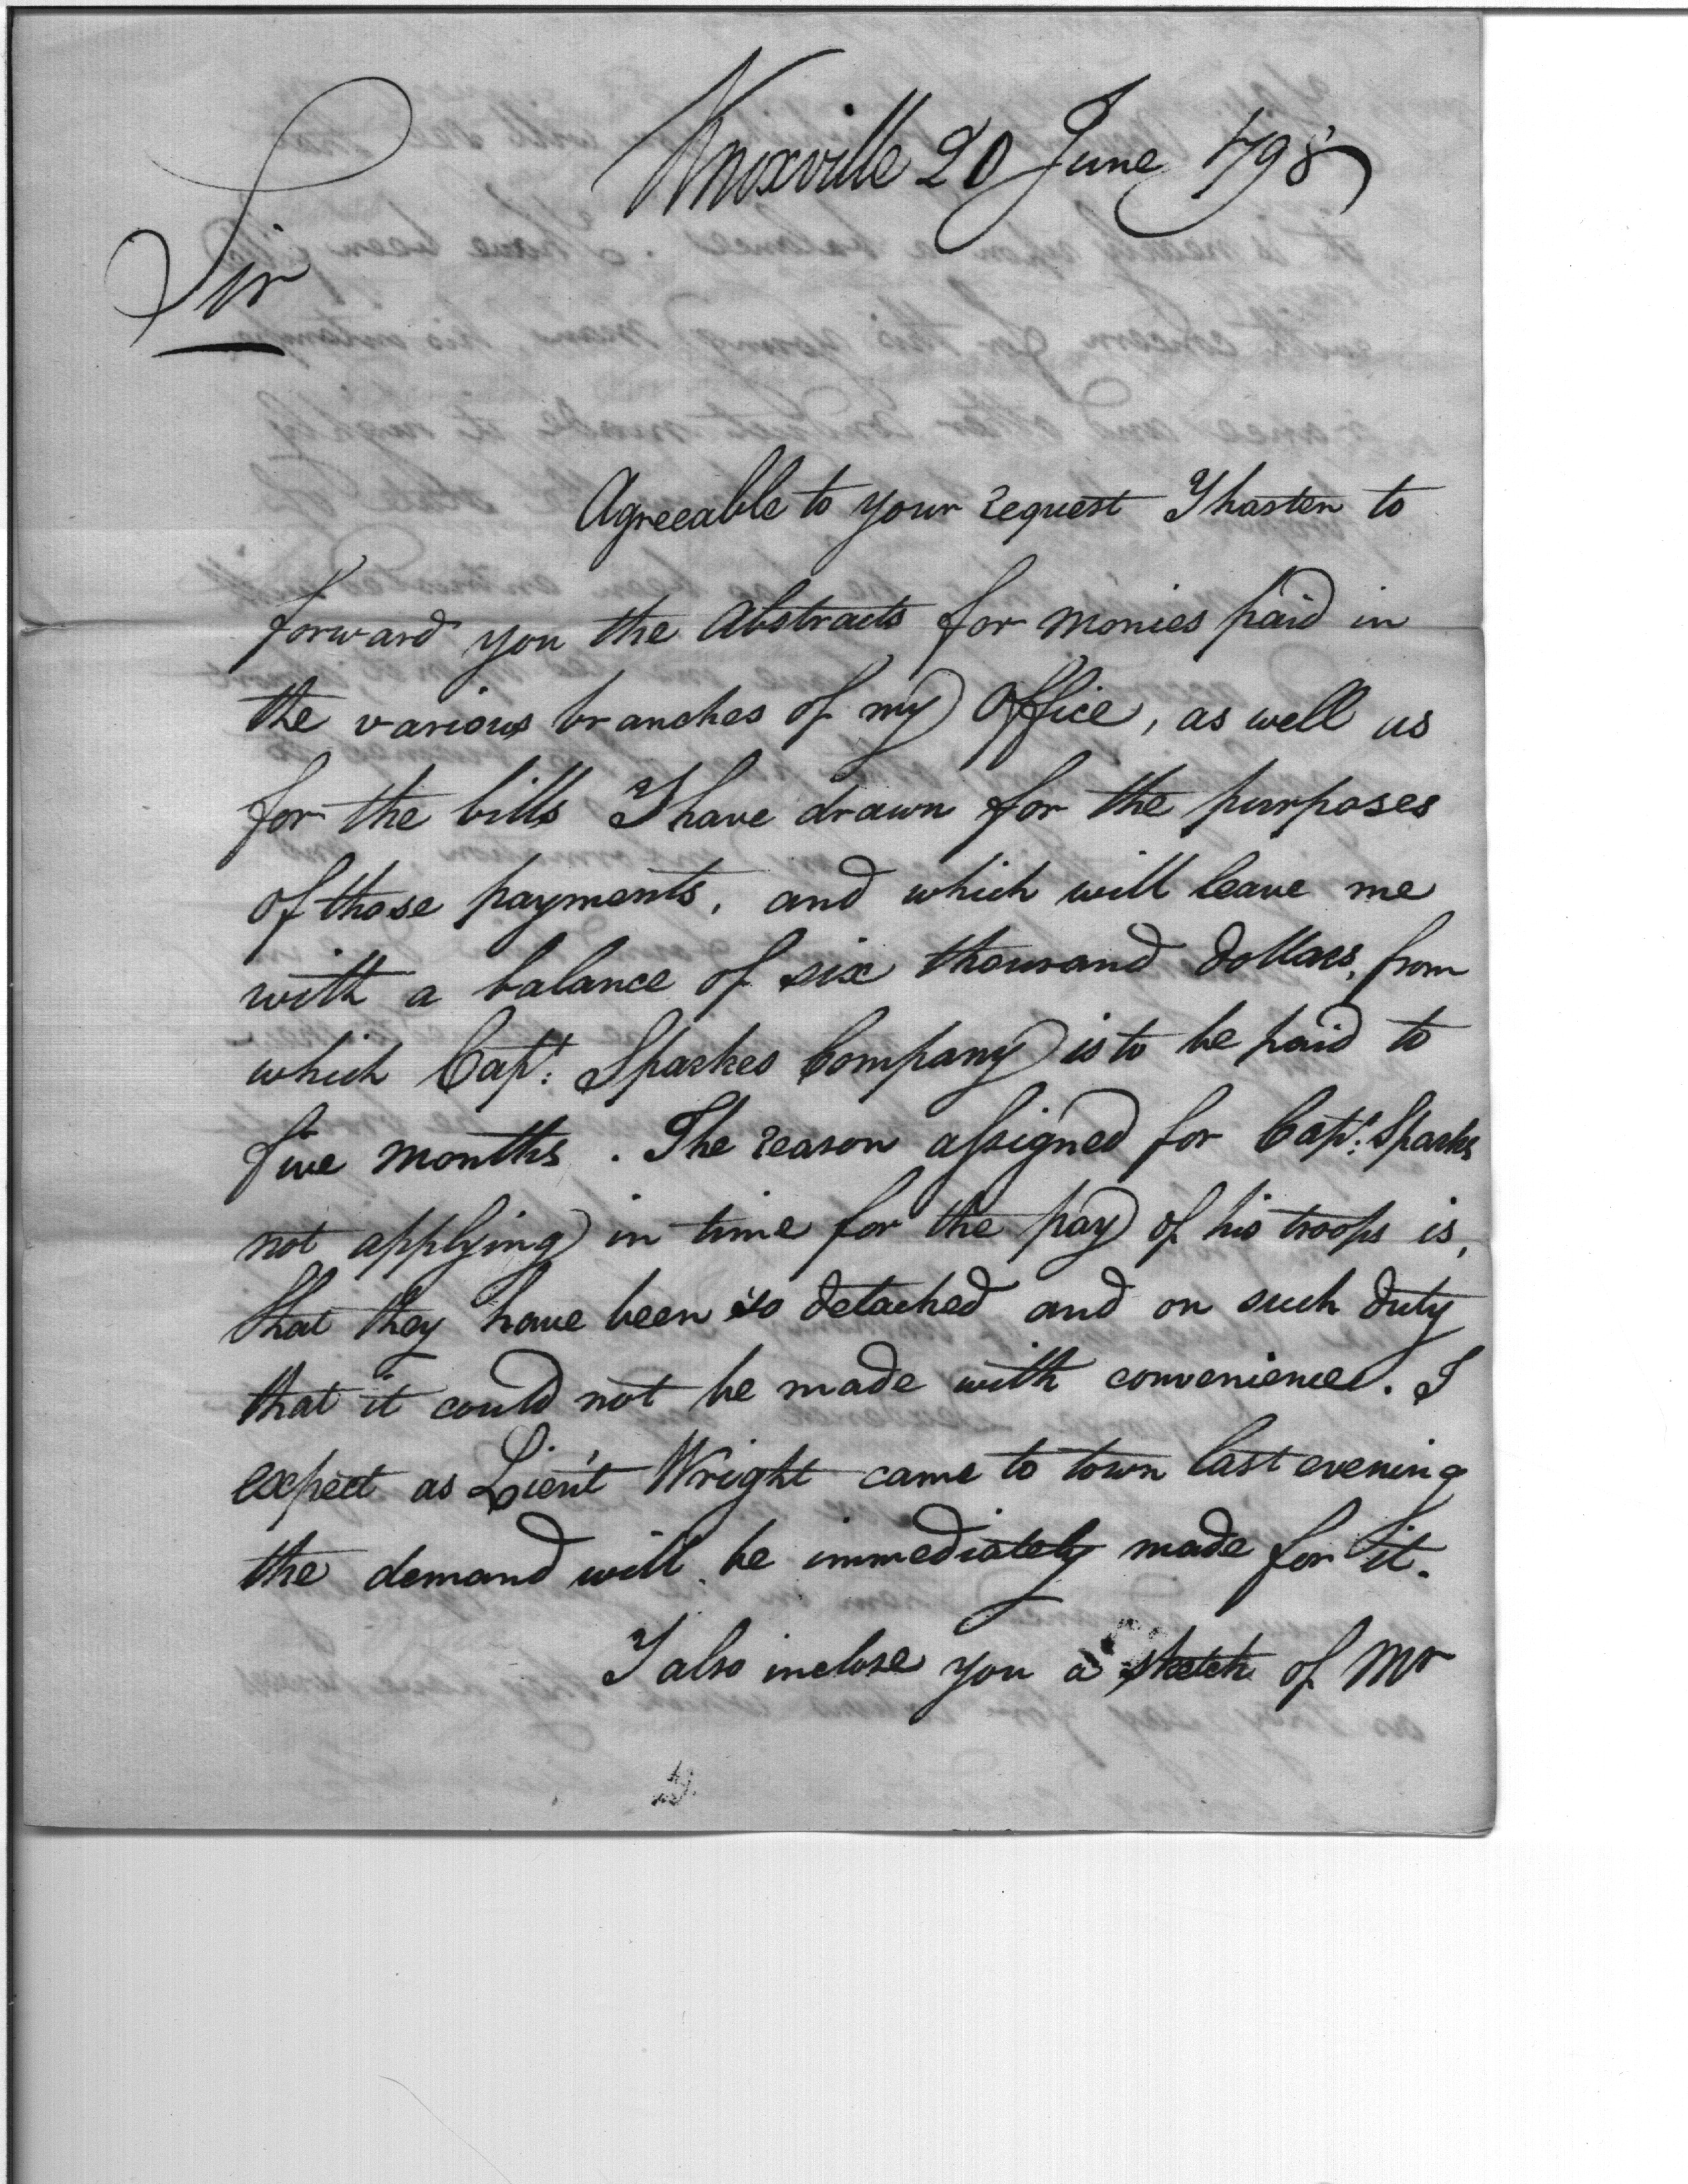 Knoxville 20 June 1798
Sir
Agreeable to your request I hasten to
forward you the Abstracts for monies paid in
the various branches of my Office, as well as
for the bills I have drawn for the purposes
of those payments, and which will leave me
with a balance of six thousand dollars, from
which Capt: Sparkes Company is to be paid to
five months. The reason assigned for Capt: Sparks
not applying in time for the pay of his troops is,
that they have been so detached and on such duty
that it could not be made with convenience. I
expect as Lieut Wright came to town last evening
the demand will be immediately made for it.
I also inclose you a sketch of Mr